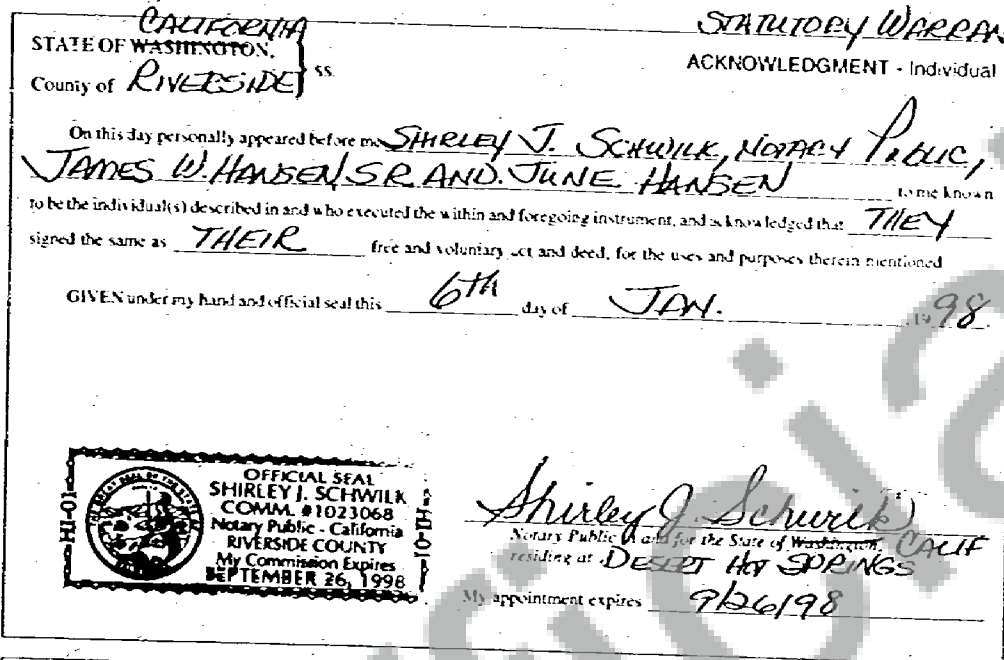 STATUTORY WARRAN
CALIFORNIA
STATE OF WASHINGTON,
ss.
ACKNOWLEDGMENT - Individual
County of RIVERSIDE
On this day personally appeared before me SHIRLEY J. SCHWILK, NOTARY PUBLIC,
JAMES W. HANSEN, SR. AND. JUNE HANSEN to me known
to be the individual(s) described in and who executed the within and foregoing instrument, and acknowledged that THEY
signed the same as THEIR free and voluntary act and deed, for the uses and purposes therein mentioned
GIVEN under my hand and official seal this 6th day of JAN. , 19 98
OFFICIAL SEAL
SHIRLEY J. SCHWILK
COMM. #1023068
Notary Public - California
RIVERSIDE COUNTY
My Commission Expires
SEPTEMBER 26, 1998
Shirley J. Schwilk
Notary Public in and for the State of Washington, CALIF
residing at DESERT HOT SPRINGS
My appointment expires 9/26/98